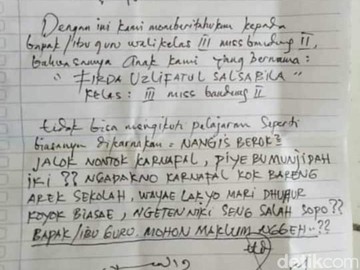 Dengan ini kami memberitahukan kepada
Bapak/ibu guru walikelas III miss bandung II,
bahwasannya anak kami yang bernama:
" FIKDA UZLIFATUL SALSABILA "
Kelas: III miss bandung II
tidak bisa mengikuti pelajaran seperti
biasanya dikarnakan = NANGIS BEROK2
JALOK NONTOK KARNAFAL, PIYE BU MUNJIDAH
IKI ?? NGAPAKNO KARNAFAL KOK BARENG
AREK SEKOLAH, WAYAE LAKYO MARI DHUHUR
KOYOK BIASAE, NGETEN NIKI SENG SALAH SOPO??
BAPAK/IBU GURU. MOHON MAKLUM NGGEH..??
ttd
detikcom